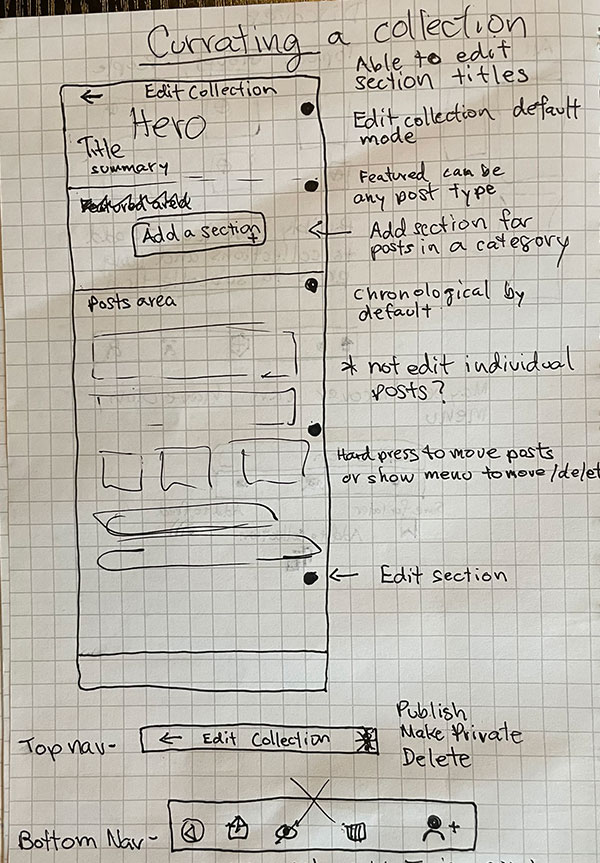 Currating a collection
Able to edit
section titles
← Edit Collection
Hero
Title
summary
Edit collection default
mode
Featured can be
any post type
Add a section +
← Add section for
posts in a category
Posts area
chronological by
default
* not edit individual
posts?
Hard press to move posts
or show menu to move/delet
← Edit section
Top nav-
← Edit Collection
Publish
Make Private
Delete
Bottom Nav-